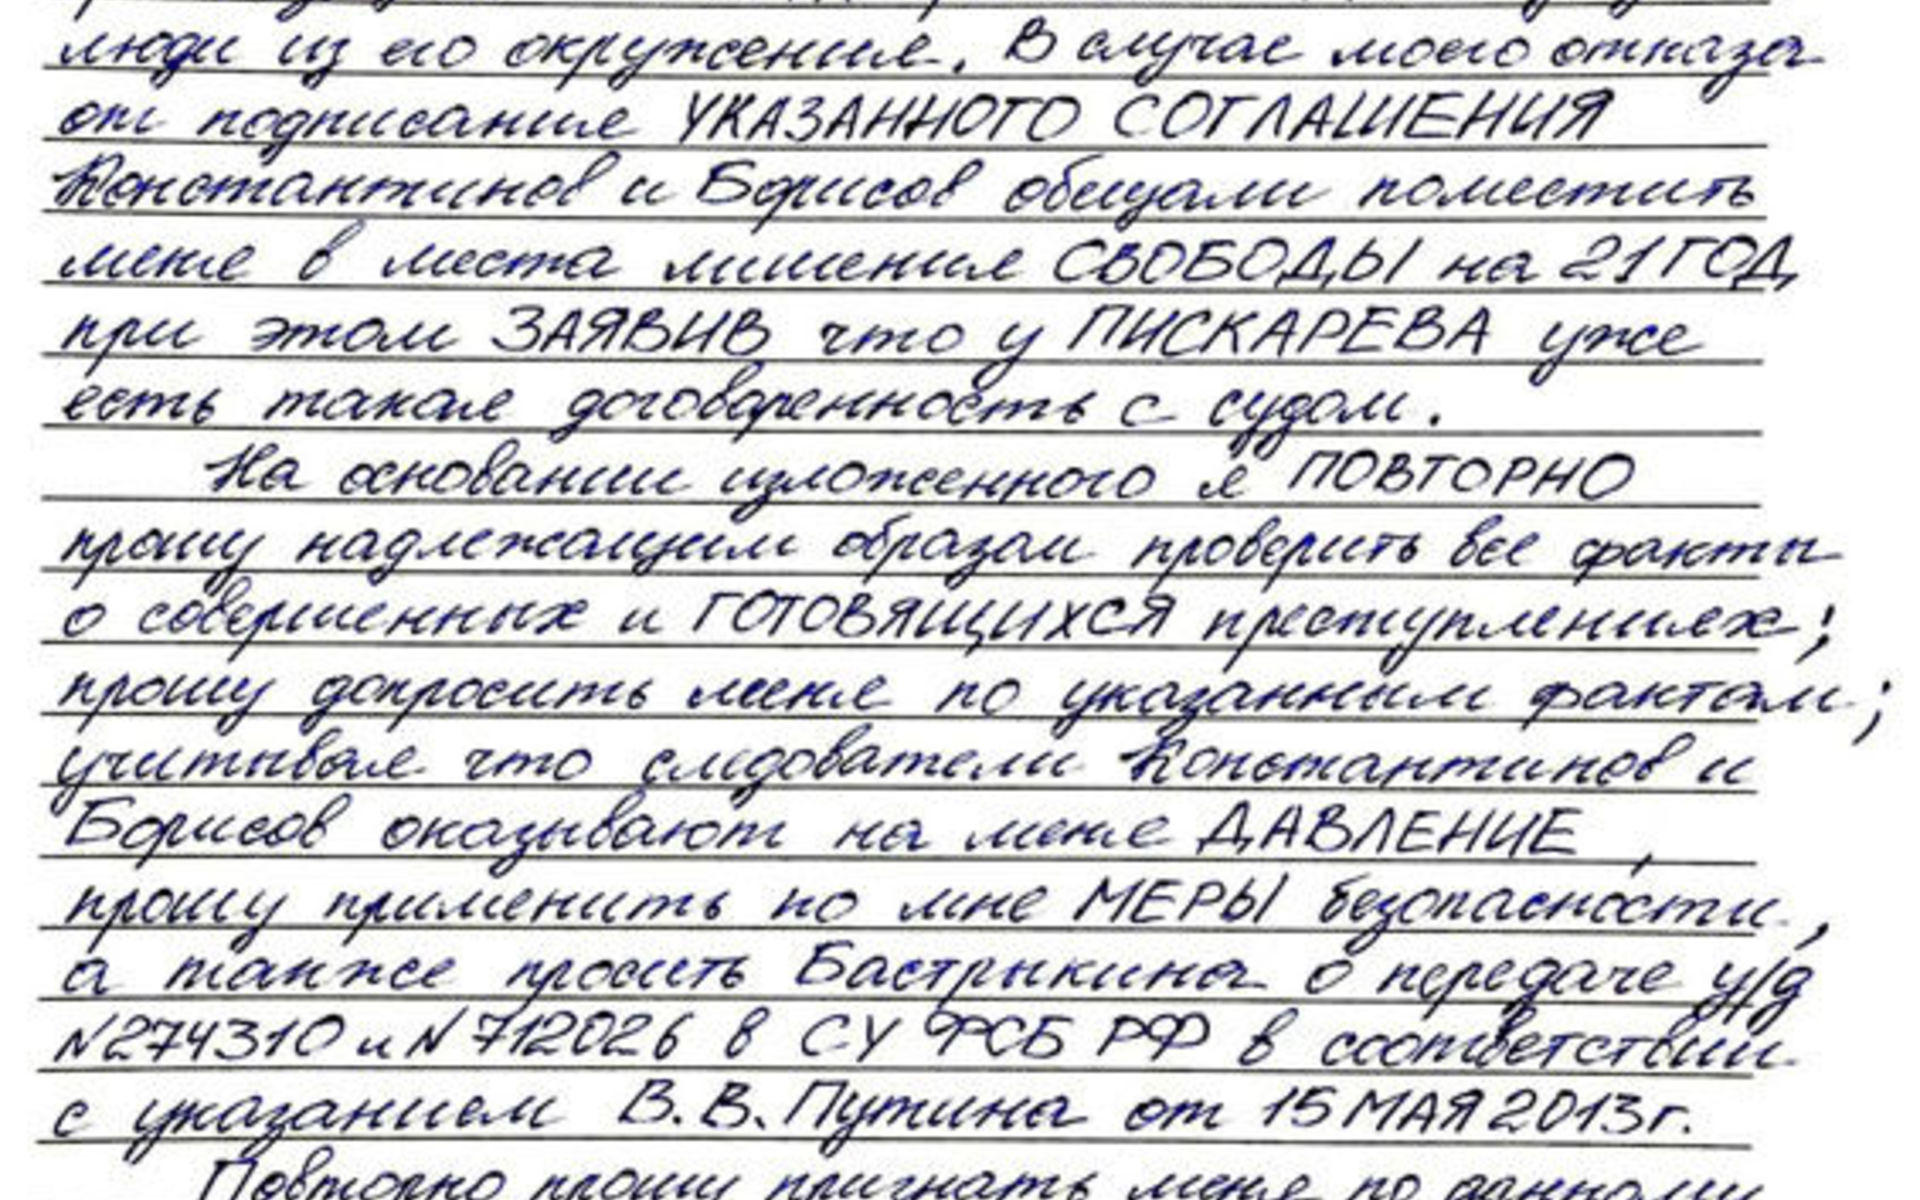 люди из его окружения. В случае моего отказа
от подписание УКАЗАННОГО СОГЛАШЕНИЯ
Константинов и Борисов обещали поместить
меня в места лишения СВОБОДЫ на 21 ГОД,
при этом ЗАЯВИВ что у ПИСКАРЕВА уже
есть такая договоренность с судом.
На основании изложенного я ПОВТОРНО
прошу надлежащим образом проверить все факты
о совершенных и ГОТОВЯЩИХСЯ преступлениях;
прошу допросить меня по указанным фактам;
учитывая что следователи Константинов и
Борисов оказывают на меня ДАВЛЕНИЕ,
прошу применить ко мне МЕРЫ безопасности,
а также просить Бастрыкина о передаче у/д
N274310 и N 712026 в СУ ФСБ РФ в соответствии
с указанием В.В. Путина от 15 МАЯ 2013г.
Повторно прошу признать меня по данному